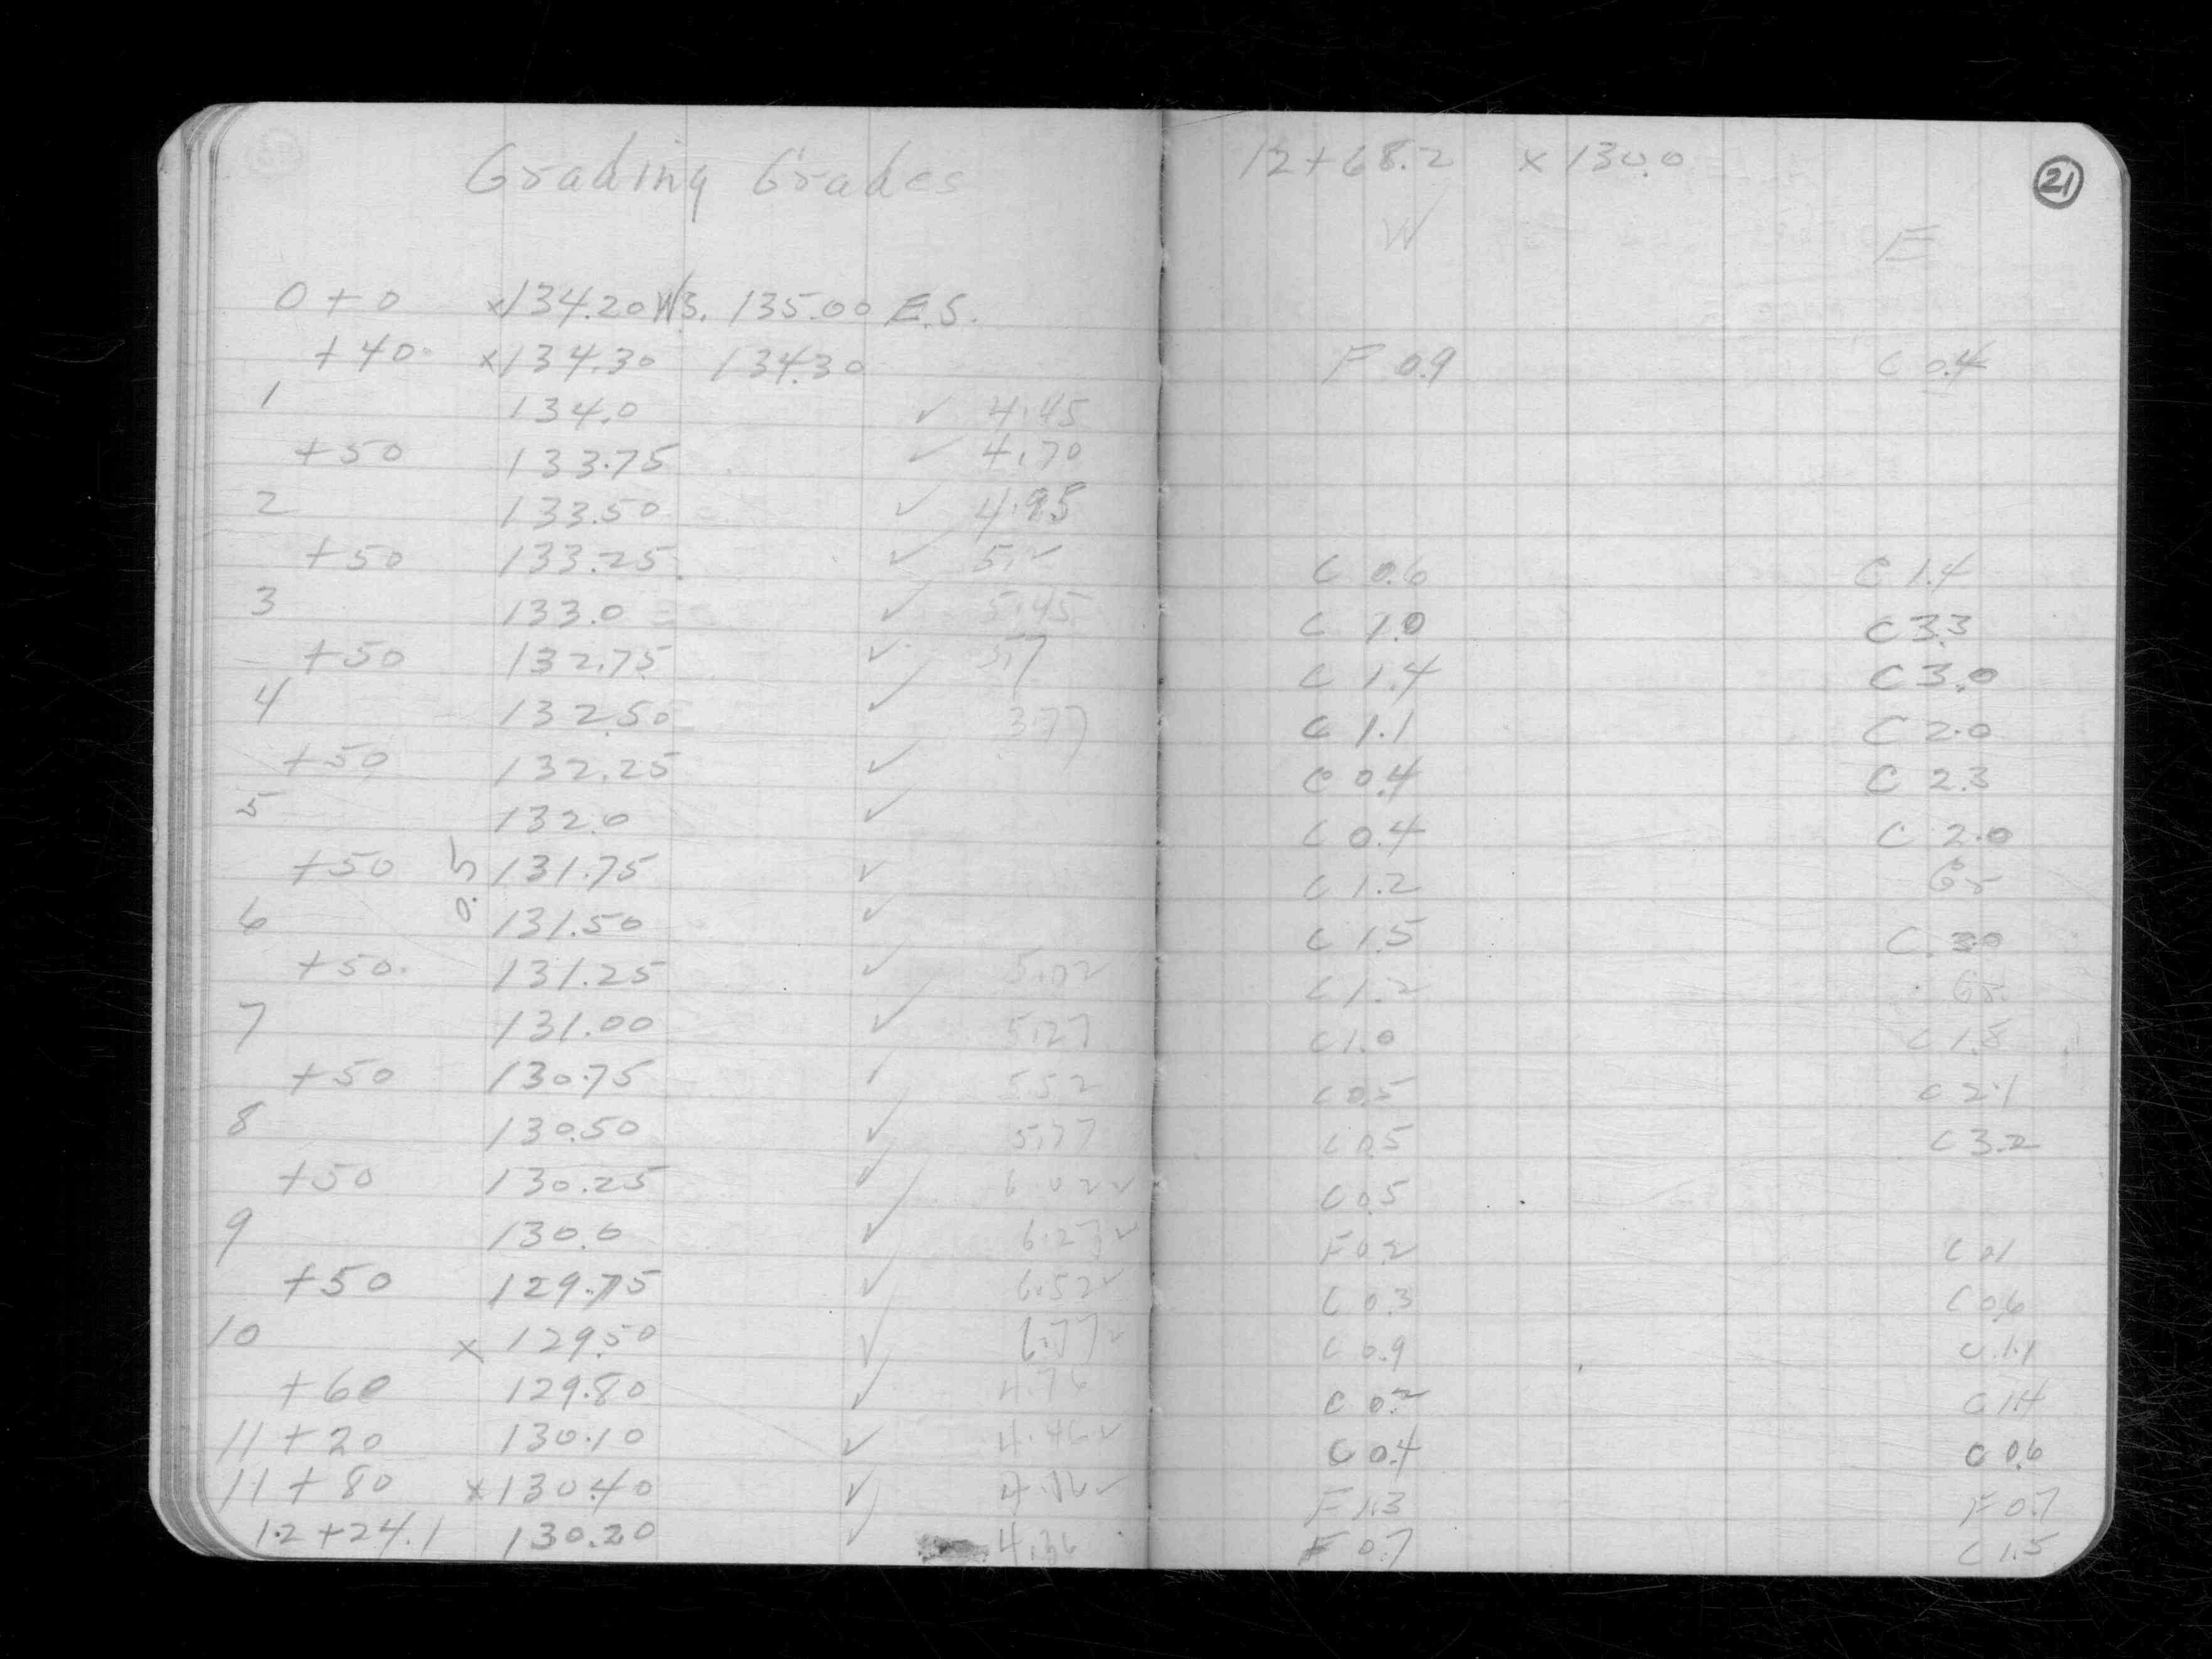 Grading Grades
0+0 x134.20 W.S. 135.00 E.S.
+40 x134.30 134.30
1 134.0 ✓ 4.45
+50 133.75 ✓ 4.70
2 133.50 ✓ 4.95
+50 133.25 ✓ 5.2
3 133.0 ✓ 5.45
+50 132.75 ✓ 5.7
4 132.50 ✓ 3.77
+50 132.25 ✓
5 132.0 ✓
+50 131.75 ✓
6 131.50 ✓
+50 131.25 ✓ 5.02
7 131.00 ✓ 5.27
+50 130.75 ✓ 5.52
8 130.50 ✓ 5.77
+50 130.25 ✓ 6.02 ✓
9 130.0 ✓ 6.27 ✓
+50 129.75 ✓ 6.52 ✓
10 x 129.50 ✓ 6.77 ✓
+60 129.80 ✓ 4.76
11+20 130.10 ✓ 4.46 ✓
11+80 x130.40 ✓ 4.16 ✓
12+24.1 130.20 ✓ 4.36
12+68.2 x130.0
21
W E
F 0.9 C 0.4
C 0.6 C 1.4
C 1.0 C 3.3
C 1.4 C 3.0
C 1.1 C 2.0
C 0.4 C 2.3
C 0.4 C 2.0
C 1.2 Gr
C 1.5 C 3.0
C 1.2 Gr.
C 1.0 C 1.8
C 0.5 C 2.1
C 0.5 C 3.2
C 0.5
F 0.2 C 0.1
C 0.3 C 0.6
C 0.9 C 1.1
C 0.2 C 1.4
C 0.4 C 0.6
F 1.3 F 0.7
F 0.7 C 1.5